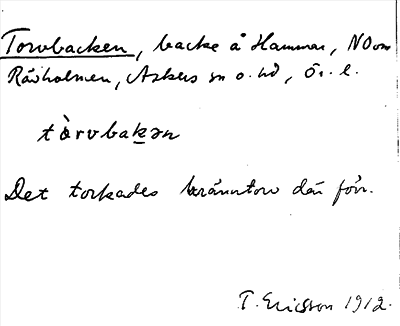 Torvbacken, backe å Hammar, NO om
Råholmen, Askers sn o. hd, Ör. l.
tàrvbakən
Det torkades bränntorv där förr.
T. Ericsson 1912.